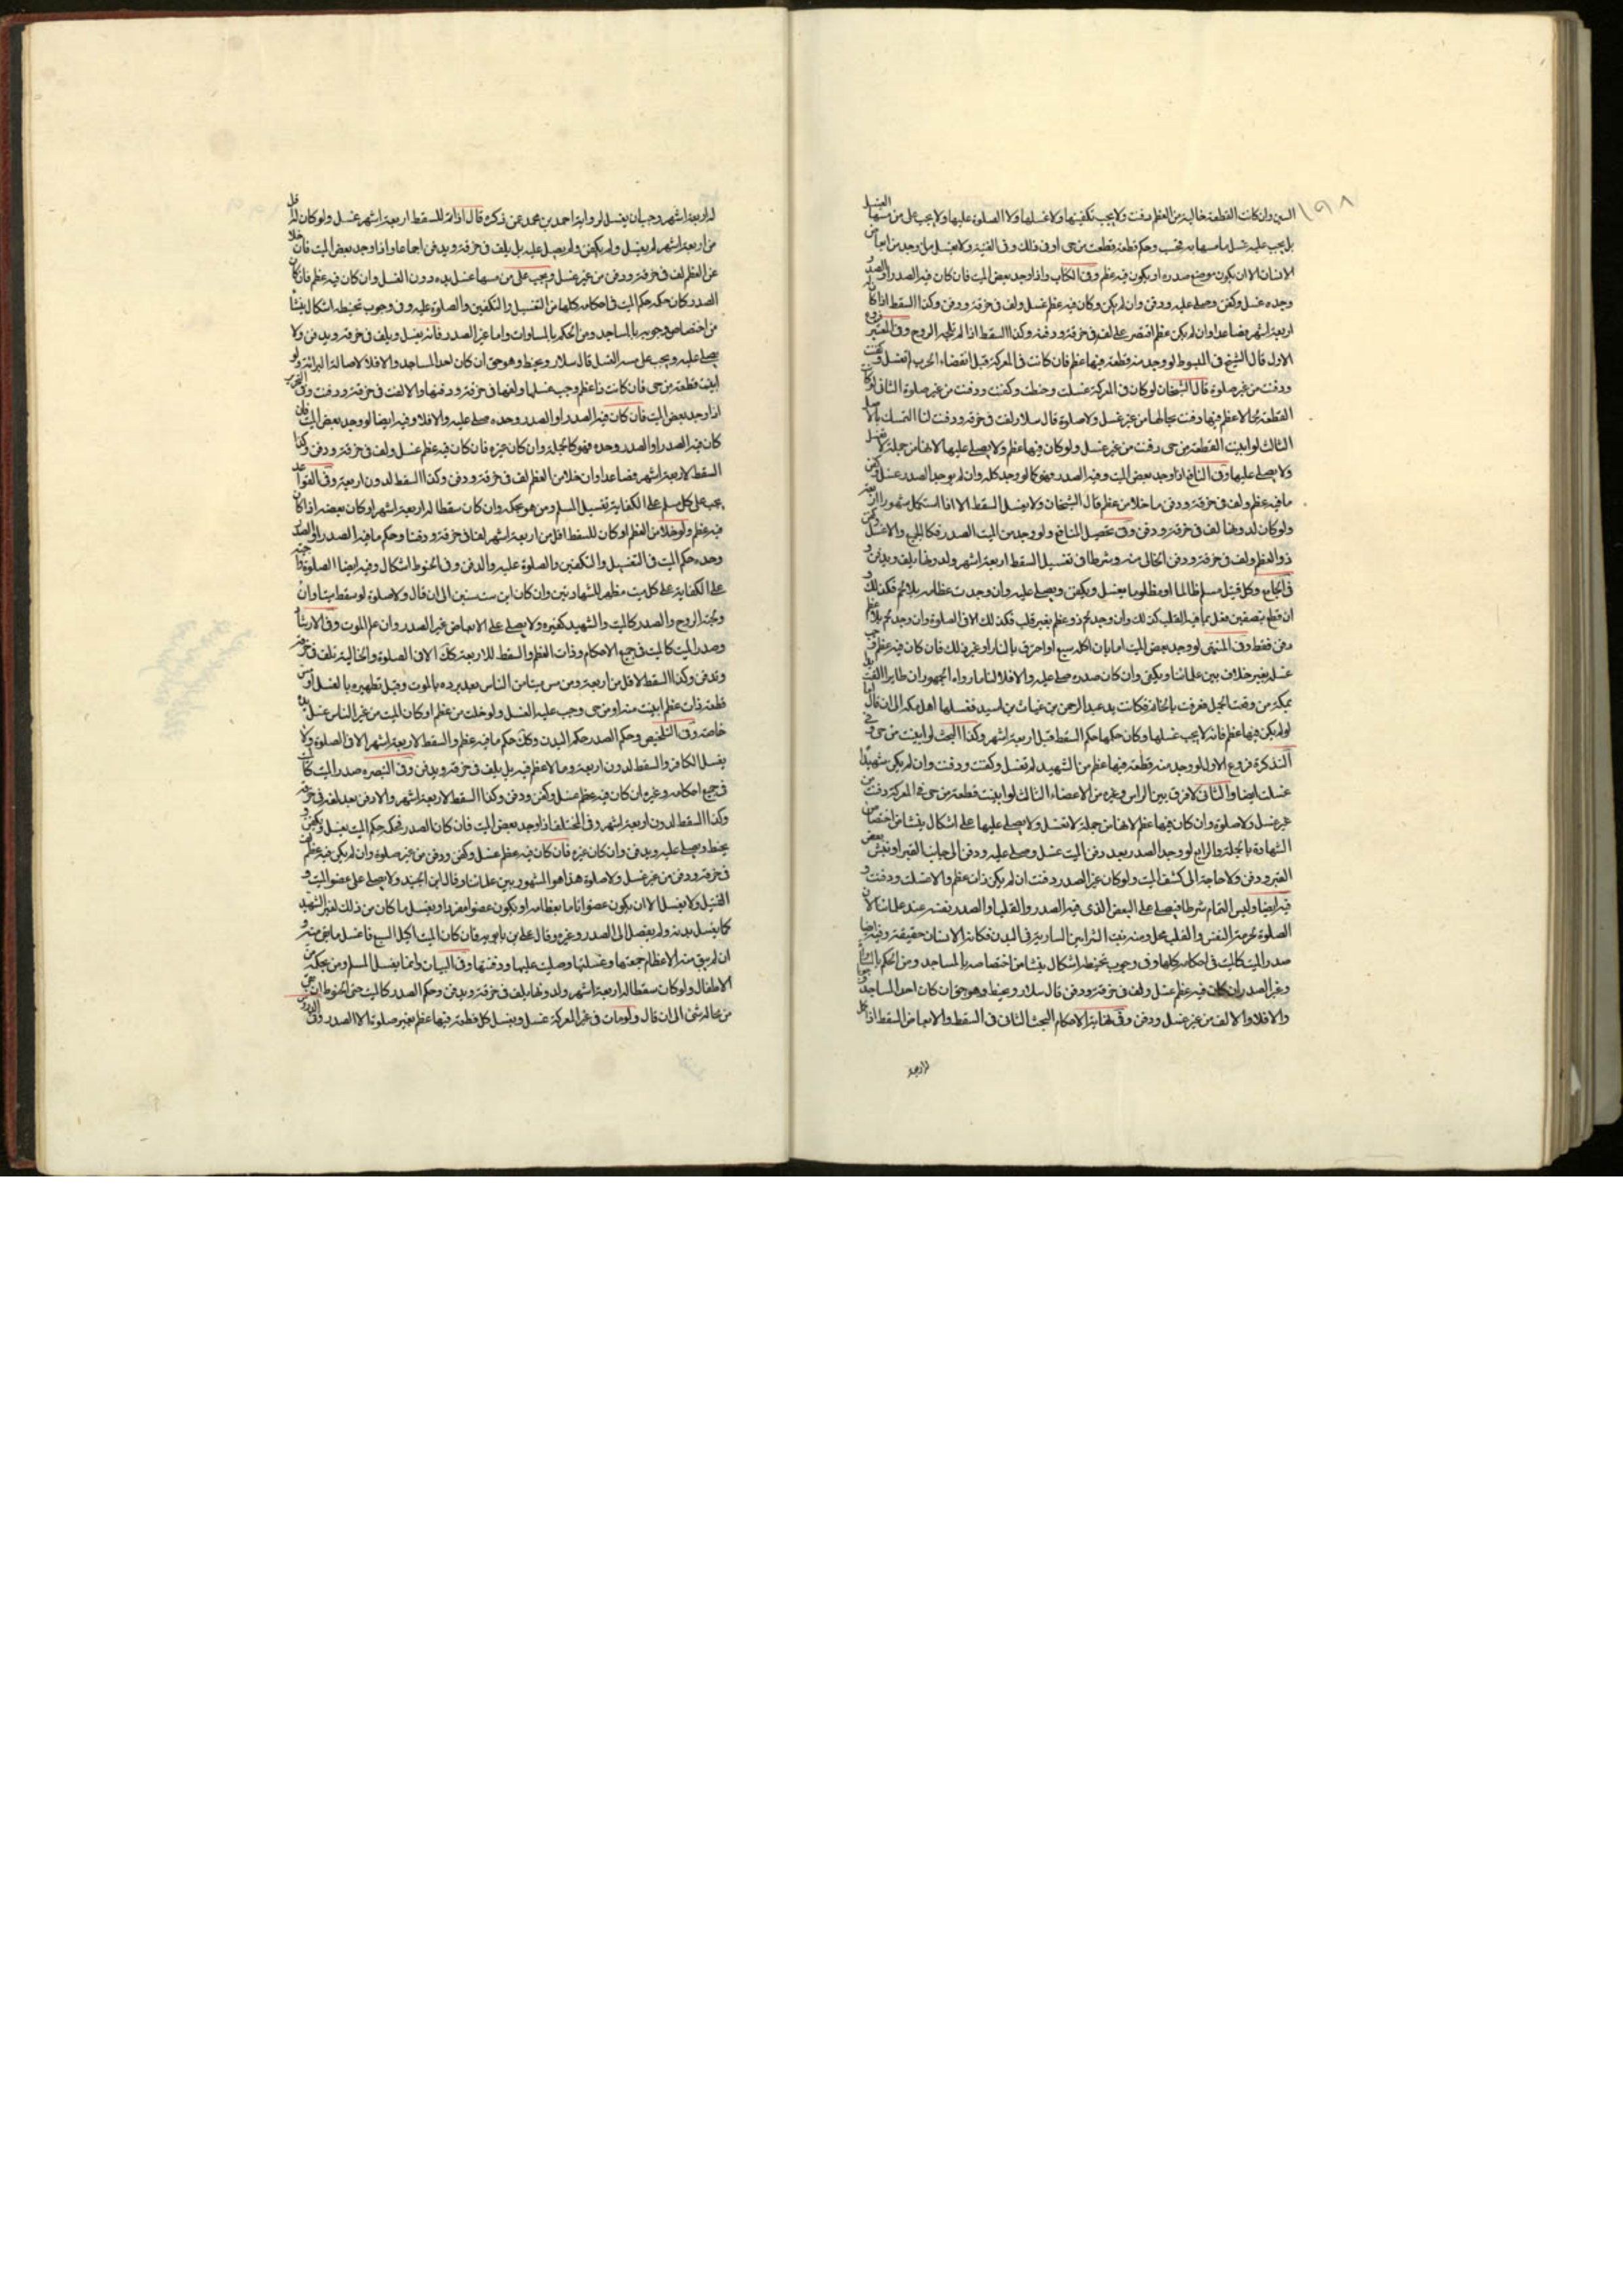 ١٩٨
السن وان كانت القطعة خالية من العظم دفنت ولا يجب تكفينها ولا غسلها ولا الصلوة عليها ولا يجب على من مسها الغسل
بل يجب عليه غسل ما مسها به وحكم قطعة قطعت من حى او فى ذلك وفى الغنية ولا يغسل ما وجد من ابعاض
الانسان الا ان يكون موضع صدره او يكون فيه عظم وفى الكتاب واذا وجد بعض الميت فان كان فيه الصدر او الصدر
وحده غسل وكفن وصلى عليه ودفن وان لم يكن وكان فيه عظم غسل ولف فى خرقة ودفن وكذا السقط اذا كان له
اربعة اشهر فصاعدا وان لم يكن عظم اقتصر على لفه فى خرقة ودفنه وكذا السقط اذا لم تلجه الروح وفى المعتبر فروع
الاول قال الشيخ فى المبسوط لو وجد منه قطعة فيها عظم فان كانت فى المعركة قبل انقضاء الحرب لم تغسل وكفنت
ودفنت من غير صلوة قال الشيخان لو كان فى المعركة غسلت وحنطت وكفنت ودفنت من غير صلوة الثانى لو كانت
القطعة مما لا عظم فيها دفنت بحالها من غير غسل ولا صلوة قال سلار لفت فى خرقة ودفنت لنا التمسك بالاصل
الثالث لو ابينت القطعة من حى دفنت من غير غسل ولو كان فيها عظم ولا يصلى عليها لانها من جملة لا يغسل
ولا يصلى عليها وفى النافع اذا وجد بعض الميت وفيه الصدر فهو كما لو وجد كله وان لم يوجد الصدر غسل وكفن
ما فيه عظم ولف فى خرقة ودفن ما خلا من عظم قال الشيخان ولا يغسل السقط الا اذا استكمل شهورا اربعة
ولو كان لدونها لف فى خرقة ودفن وفى تحصيل المنافع ولو وجد من الميت الصدر فكالحى والا غسل وكفن
ذو العظم ولف فى خرقة ودفن الخالى منه وشرط فى تغسيل السقط اربعة اشهر ولدونها يلف ويدفن و
فى الجامع وكل قتيل مسلم ظالما او مظلوما يغسل ويكفن ويصلى عليه وان وجدت عظامه بلا لحم فكذلك و
ان قطع بنصفين فعل بما فيه القلب كذلك وان وجد لحم ذو عظم بغير قلب فكذلك الا فى الصلوة وان وجد لحم بلا عظم
دفن فقط وفى المنتهى لو وجد بعض الميت اما بان اكله سبع او احترق بالنار او غير ذلك فان كان فيه عظم وجب
غسله بغير خلاف بين علمائنا ويكفن وان كان صدره صلى عليه والا فلا لنا ما رواه الجمهور ان طايرا القت يدا
بمكة من وقعة الجمل فعرفت بالخاتم فكانت يد عبد الرحمن بن عتاب بن اسيد فغسلها اهل مكة الى ان قال اما
لو لم يكن فيها عظم فانه لا يجب غسلها وكان حكمها حكم السقط قبل اربعة اشهر وكذا البحث لو ابينت من حى وفى
التذكرة فروع الاول لو وجد منه قطعة فيها عظم من الشهيد لم تغسل وكفنت ودفنت وان لم يكن شهيدا
غسلت ايضا والثانى لا فرق بين الراس وغيره من الاعضاء الثالث لو ابينت قطعة من حى فى المعركة دفنت من
غير غسل ولا صلوة وان كان فيها عظم لانها من جملة لا تغسل ولا يصلى عليها على اشكال ينشأ من اختصاص
الشهادة بالجملة والرابع لو وجد الصدر بعد دفن الميت غسل وصلى عليه ودفن الى جانب القبر او نبش بعض
القبر ودفن ولا حاجة الى كشف الميت ولو كان غير الصدر دفنت ان لم يكن ذات عظم والا غسلت ودفنت و
فيه ايضا وليس التمام شرطا فيصلى على البعض الذى فيه الصدر والقلب او الصدر نفسه عند علمائنا لان
الصلوة لحرمة النفس والقلب محل ومنه تنبت الشرايين السارية فى البدن فكانه الانسان حقيقة وفيه ايضا
صدر الميت كالميت فى احكامه كلها وفى وجوب تحنيطه اشكال ينشأ من اختصاصه بالمساجد ومن الحكم بالمساواة
وغير الصدر ان كان فيه عظم غسل ولف فى خرقة ودفن قال سلار ويحنط وهو حق ان كان احد المساجد
والا فلا والا لف من غير غسل ودفن وفى نهاية الاحكام البحث الثانى فى السقط والابعاض السقط اذا كمل
له اربعة اشهر وجب ان يغسل لرواية احمد بن محمد عمن ذكره قال اذا تم للسقط اربعة اشهر غسل ولو كان له اقل
من اربعة اشهر لم يغسل ولم يكفن ولم يصل عليه بل يلف فى خرقة ويدفن اجماعا واذا وجد بعض الميت فان خلا
عن العظم لف فى خرقة ودفن من غير غسل ويجب على من مسها غسل يده دون الغسل وان كان فيه عظم فان كان
الصدر كان حكمه حكم الميت فى احكامه كلها من التغسيل والتكفين والصلوة عليه وفى وجوب تحنيطه اشكال ينشأ
من اختصاص وجوبه بالمساجد ومن الحكم بالمساوات واما غير الصدر فانه يغسل ويلف فى خرقة ويدفن ولا
يصلى عليه ويجب على مسه الغسل قال سلار ويحنط وهو حق ان كان احد المساجد والا فلا لاصالة البرائة ولو
ابينت قطعة من حى فان كانت ذا عظم وجب غسلها ولفها فى خرقة ودفنها والا لفت فى خرقة ودفنت وفى التحرير
اذا وجد بعض الميت فان كان فيه الصدر او الصدر وحده صلى عليه والا فلا وفيه ايضا لو وجد بعض الميت فان
كان فيه الصدر او الصدر وحده فهو كالجملة وان كان غيره فان كان فيه عظم غسل ولف فى خرقة ودفن وكذا
السقط لاربعة اشهر فصاعدا وان خلا من العظم لف فى خرقة ودفن وكذا السقط لدون اربعة وفى القواعد
يجب على كل مسلم على الكفاية تغسيل المسلم ومن هو بحكمه وان كان سقطا له اربعة اشهر او كان بعضه اذا كان
فيه عظم ولو خلا من العظم او كان للسقط اقل من اربعة اشهر لفا فى خرقة ودفنا وحكم ما فيه الصدر او الصدر
وحده حكم الميت فى التغسيل والتكفين والصلوة عليه والدفن وفى الحنوط اشكال وفيه ايضا الصلوة واجبة
على الكفاية على كل ميت مظهر للشهادتين وان كان ابن ست سنين الى ان قال ولا صلوة لو سقط ميتا وان
ولجته الروح والصدر كالميت والشهيد كغيره ولا يصلى على الابعاض غير الصدر وان علم الموت وفى الارشاد
وصدر الميت كالميت فى جميع الاحكام وذات العظم والسقط للاربعة كك الا فى الصلوة والخالية تلف فى خرقة
وتدفن وكذا السقط لاقل من اربعة ومن مس ميتا من الناس بعد برده بالموت وقبل تطهيره بالغسل او مس
قطعة ذات عظم ابينت منه او من حى وجب عليه الغسل ولو خلت من عظم او كان الميت من غير الناس غسل يده
خاصة وفى التلخيص وحكم الصدر حكم البدن وكك حكم ما فيه عظم والسقط لاربعة اشهر الا فى الصلوة ولا
يغسل الكافر والسقط لدون اربعة وما لا عظم فيه بل يلف فى خرقة ويدفن وفى التبصره صدر الميت كالميت
فى جميع احكامه وغيره ان كان فيه عظم غسل وكفن ودفن وكذا السقط لاربعة اشهر والا دفن بعد لفه فى خرقة
وكذا السقط لدون اربعة اشهر وفى المختلف اذا وجد بعض الميت فان كان الصدر فحكمه حكم الميت يغسل ويكفن و
يحنط ويصلى عليه ويدفن وان كان غيره فان كان فيه عظم غسل وكفن ودفن من غير صلوة وان لم يكن فيه عظم لف
فى خرقة ودفن من غير غسل ولا صلوة هذا هو المشهور بين علمائنا وقال ابن الجنيد ولا يصلى على عضو الميت و
القتيل ولا يغسل الا ان يكون عضوا تاما بعظامه او يكون عضوا مفردا ويغسل ما كان من ذلك لغير الشهيد
كما يغسل بدنه ولم يفصل الى الصدر وغيره وقال على بن بابويه فان كان الميت اكيل السبع فاغسل ما بقى منه و
ان لم يبق منه الا عظام جمعتها وغسلتها وصليت عليها ودفنتها وفى البيان وانما يغسل المسلم ومن بحكمه من
الاطفال ولو كان سقطا له اربعة اشهر ولدونها يلف فى خرقة ويدفن وحكم الصدر كالميت حتى الحنوط ان بقى
من محاله شئ الى ان قال ولو مات فى غير المعركة غسل ويغسل كل قطعة فيها عظم بغير صلوة الا الصدر وفى الدروس